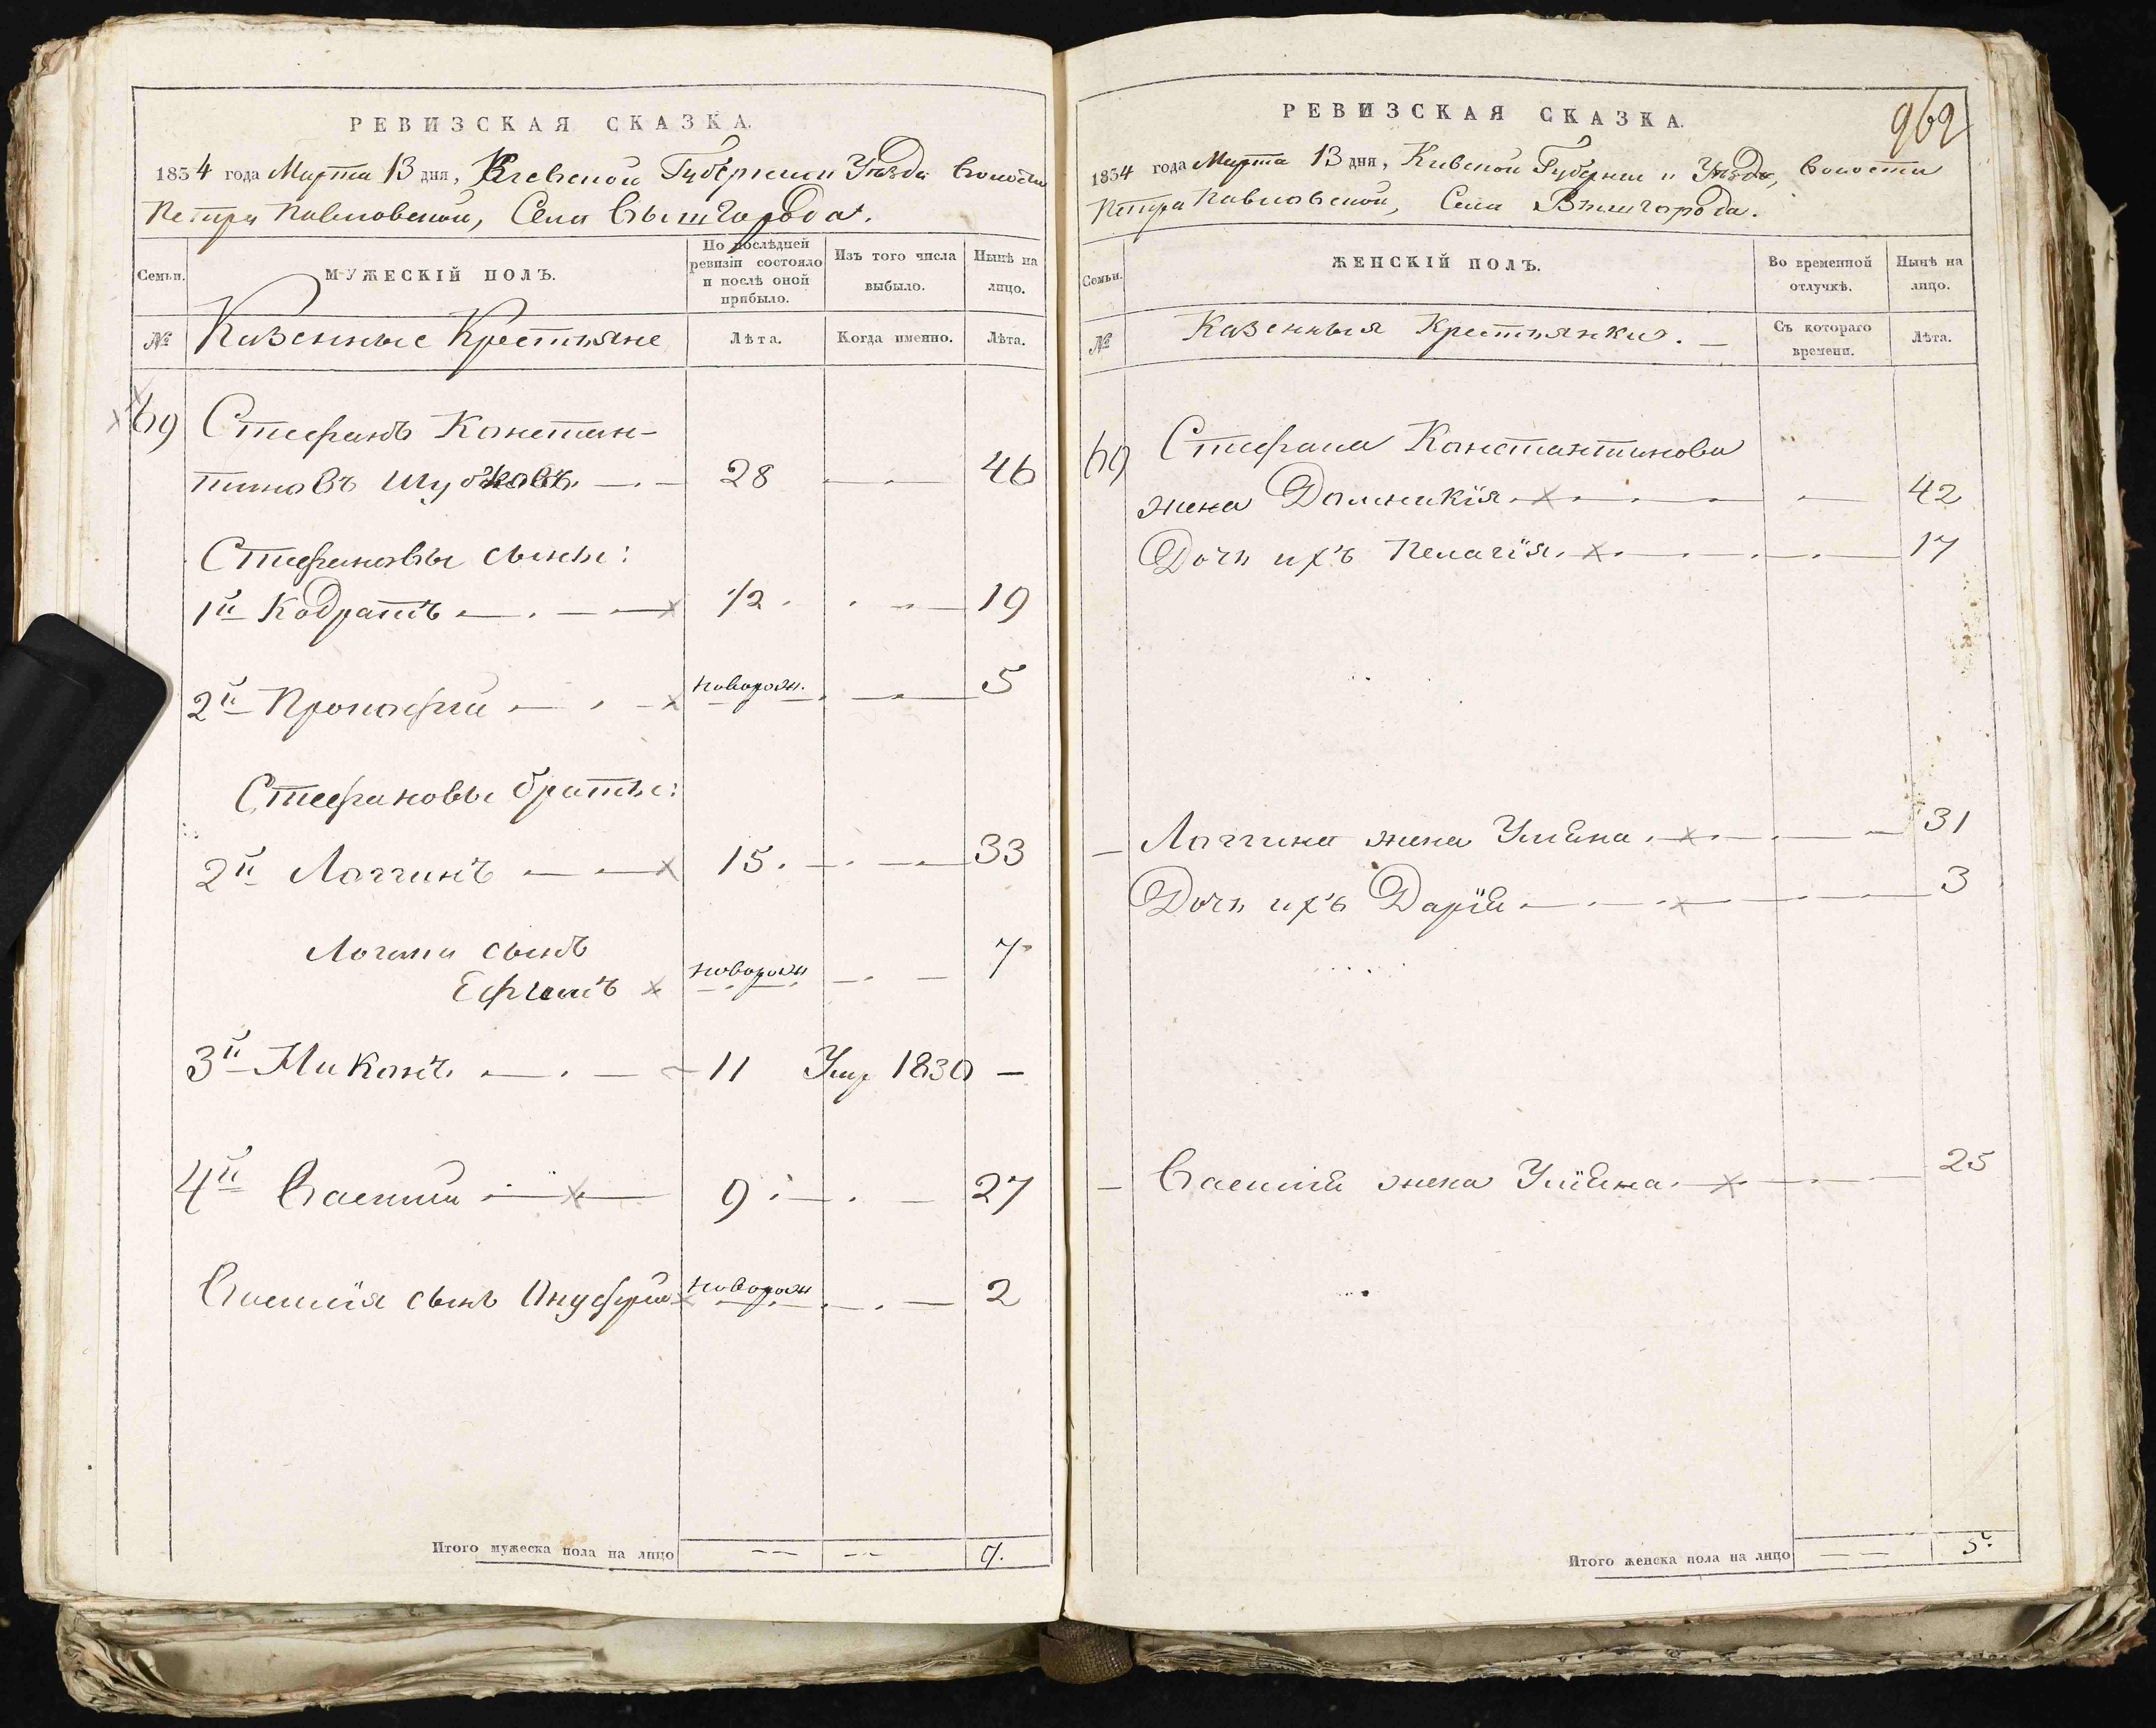 РЕВИЗСКАЯ СКАЗКА.
1834 года Марта 13 дня, Киевской Губернии Уѣзда Волости
Петра Павловской, Села Вышгорода.
Семьи.
МУЖЕСКІЙ ПОЛЪ.
По послѣдней ревизіи состояло и послѣ оной прибыло.
Изъ того числа выбыло.
Нынѣ на лицо.
№
Казенные Крестьяне
Лѣта.
Когда именно.
Лѣта.
69 Стефанъ Констан-
тиновъ 28 46
Стефановы сыны:
1й Кодратъ 1/2 19
2й Прокофій новорож. 5
Стефановы братья:
2й Логгинъ 15. 33
Логина сынъ
Ефимъ новорож 7
3й Миконъ 11 Умр 1830
4й Василій 9 27
Василія сынъ Ануфрій новорож 2
Итого мужеска пола на лицо 7.
РЕВИЗСКАЯ СКАЗКА.
962
1834 года Марта 13 дня, Киевской Губернии и Уѣзда, Волости
Петра Павловской, Села Вышгорода.
Семьи.
ЖЕНСКІЙ ПОЛЪ.
Во временной отлучкѣ.
Нынѣ на лицо.
№
Казенныя Крестьянки.
Съ котораго времени.
Лѣта.
69 Стефана Константинова
жена Домникія 42
Дочь ихъ Пелагія 17
Логгина жена Ульяна 31
Дочь ихъ Дарія 3
Василія жена Ульяна 25
Итого женска пола на лицо 5